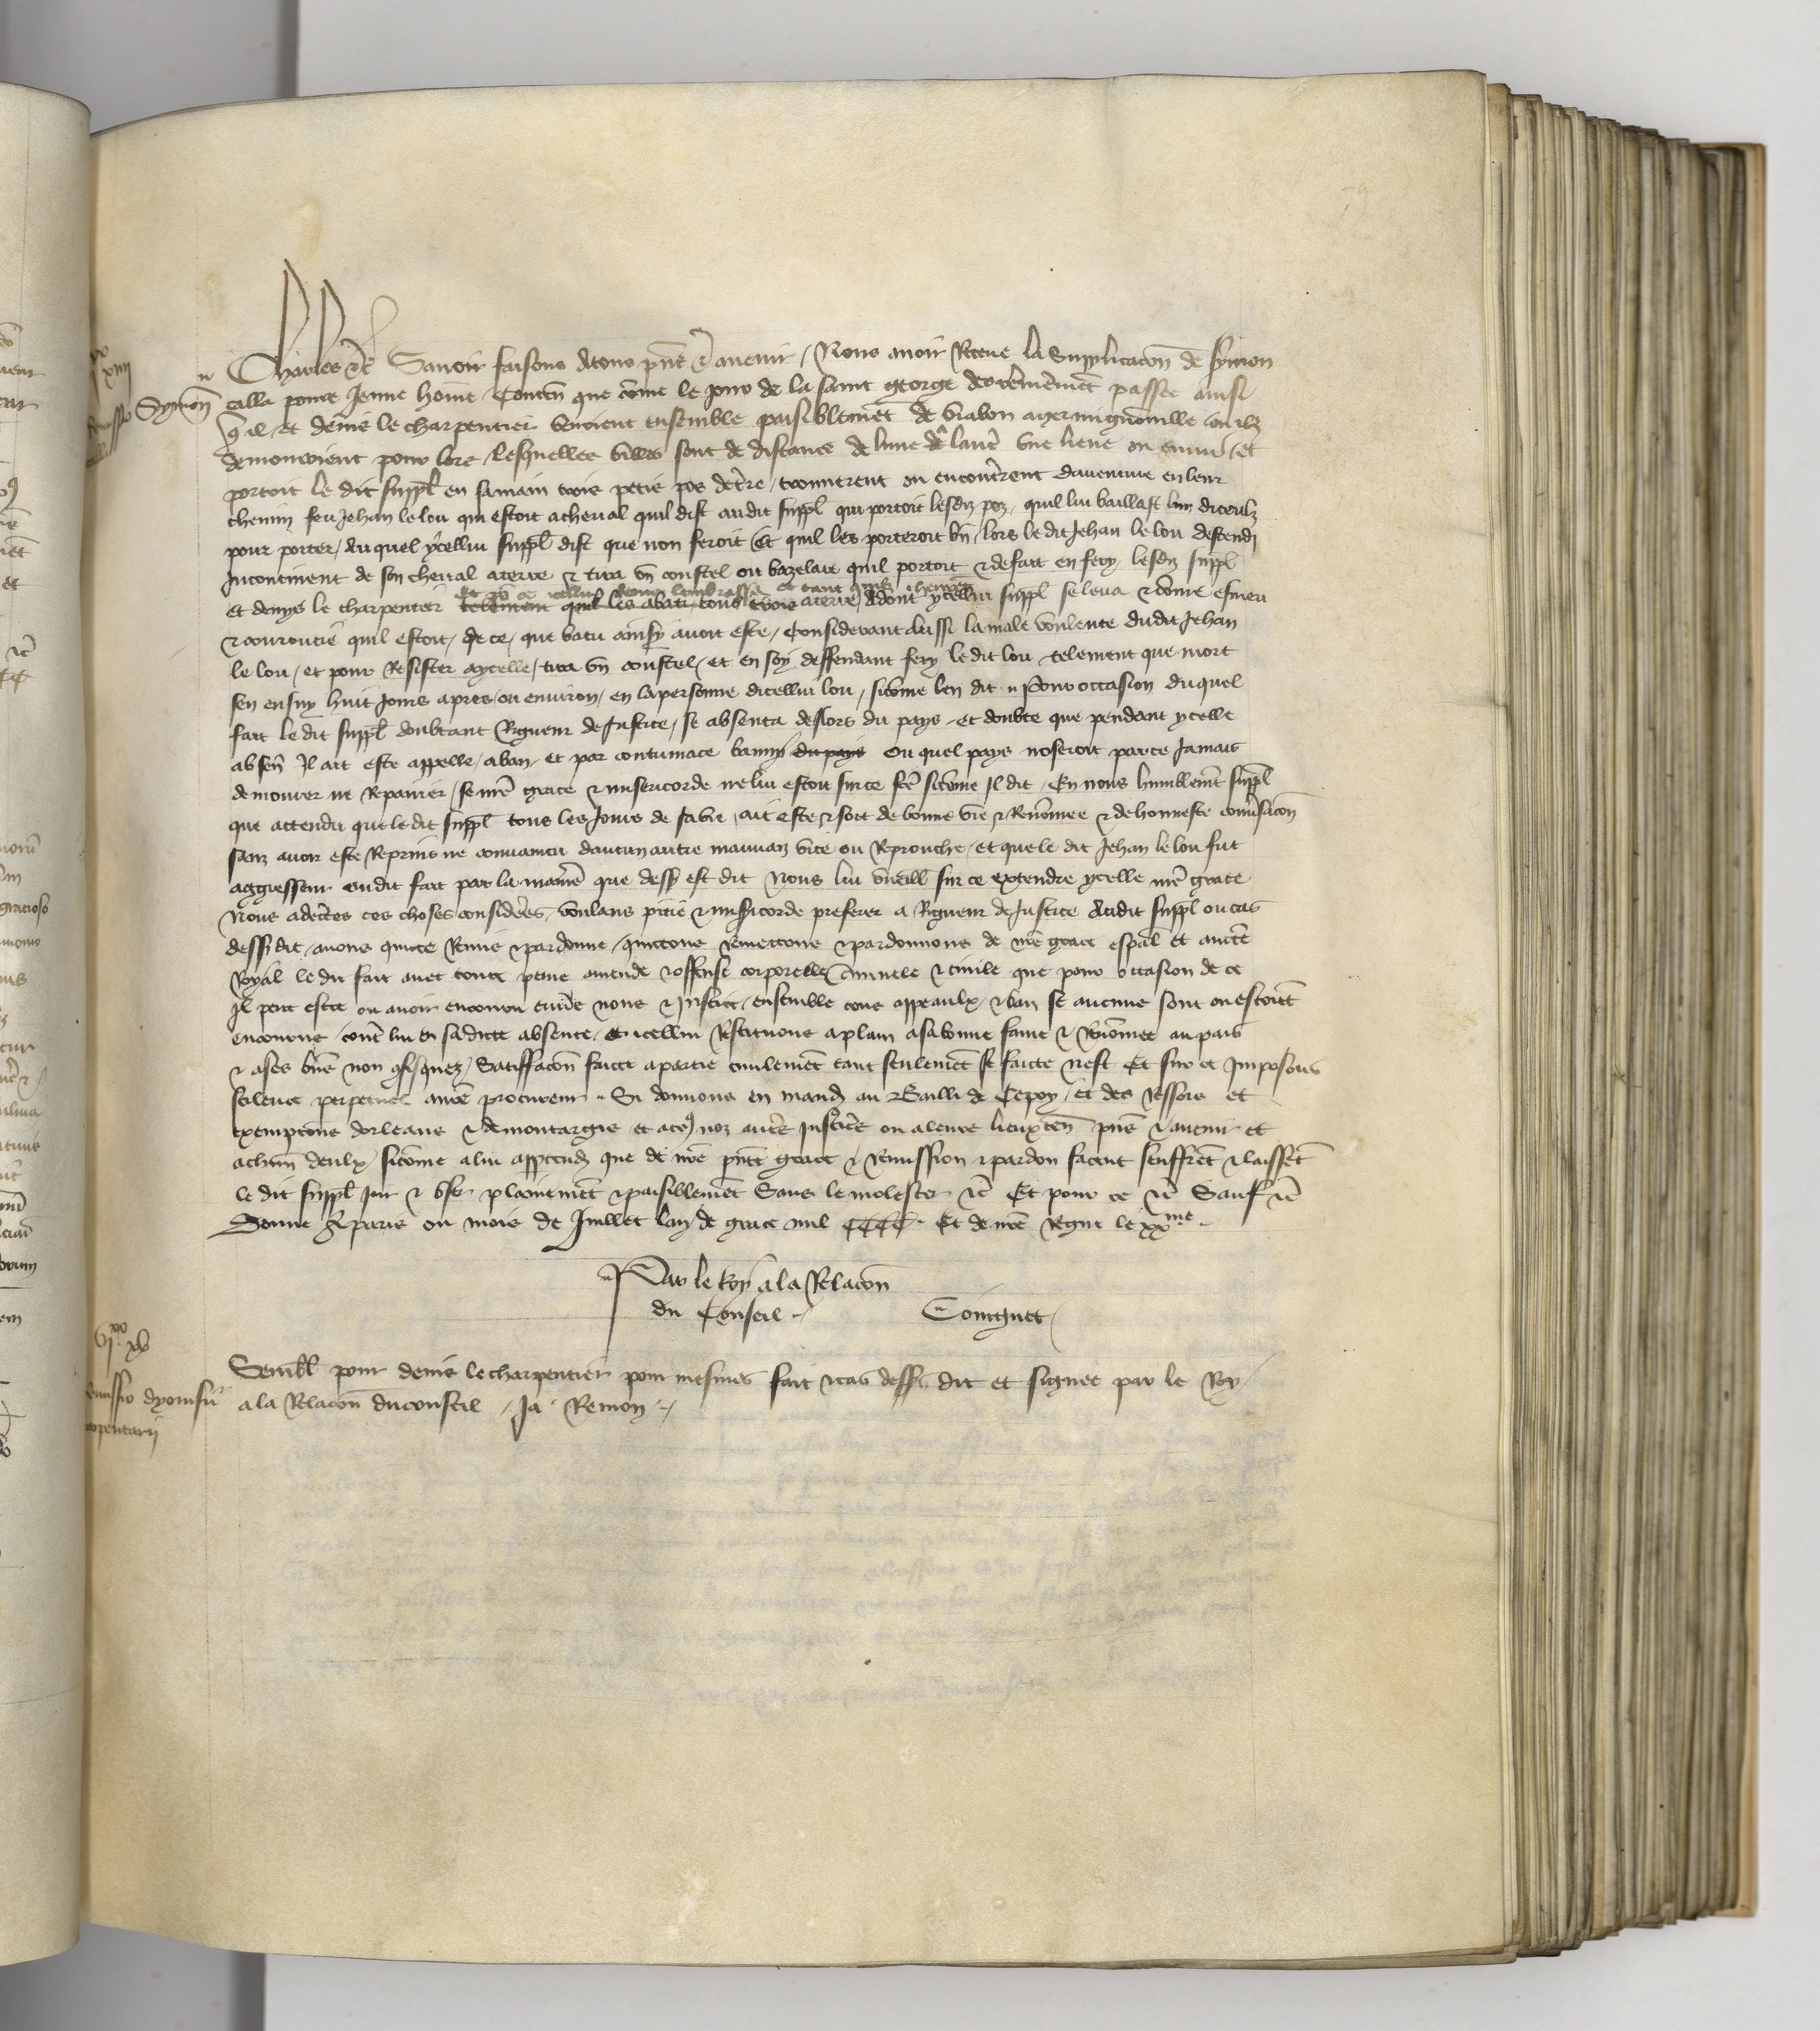 Charles etc Savoir faisons atous pñs et avenir / Nous avoir Receue la Supplicacoñ de symon
calla povre Jeune home Conteñ que cõme le jour de la saint george derrenemẽt passee ainsi
qil et denis le charpentier venoient ensemble paisiblemẽt de viabon a germignonville ou ilz
demouroient pour lors lesquelles villes sont de distance de lune de lautre une lieue ou enviro et
portoit le dit suppl en samain trois petis pos deterre / trouverent ou encontrerent daventure en leur
chemin feu Jehan le lou qui estoit acheval quil dist audit suppl qui portoit lesdiz poz quil lui baillast lun diceulz
pour porter / Auquel ycellui suppl dist que non feroit et quil les porteroit bn / lors le dit Jehan le lou descendi
Incontinent de son cheval aterre et tira un coustel ou bazelaire quil portoit et defait en fery lesdiz suppl
et denys le charpentier telement quil les abati tous trois aterre / dont ycellui suppl se leva et cõme esmeu
et couroucie quil estoit / de ce / que batu ainsy avoit este / Considerant aussi la male voulente dudit Jehan
le lou / et pour Resister aycelle / tira un coustel / et en soy deffendant fery le dit lou telement que mort
sen ensuy huit Jours apres / ou environ / en lapersonne dicellui lou / sicõme len dit Pour occasion duquel
fait le dit suppl doubtant Rigueur de Justice / se absenta deslors du pays et doubte que pendant ycelle
absenc Il ait este appelle / aban / et par contumace banny du pays Ou quel pays noseroit par ce Jamais
demourer ne Repairier / se nrẽ grace et misericorde ne lui estoit sur ce fcẽ sicõme Il dit En nous humblemẽt suppl
que attendu que le dit suppl tous les Jours de sa vie ait este et soit de bonne vie et Renõmee et de honneste conversacõn
sanz avoir este Reprins ne convaincu daucun autre mauvaiz vice ou Reprouche / et que le dit Jehan le lou fut
aggresseur oudit fait par la manẽ que dess est dit Nous lui vueill sur ce extendre ycelle nrẽ grace
Nous adcertes ces choses considerẽes / voulans pitie et misericorde preferer a Rigueur de Justice Audit suppl ou cas
dessusdit / avons quicte Remis et pardonne / quictons Remettons et pardonnons de nrẽ grace espal et auctẽ
Royal le dit fait avec toute peine amende et offense corporelle criminele et civile que pour occasion de ce
Il peut estre ou avoir encouru envers nous et Justice / ensemble tous appeaulx / et ban se aucuns sont ou estoiẽt
encourus / contr lui en sa dicte absence / et icellui Restituons aplain asabonne fame et Renõmee au pais
et ases biens non confisquez / Satiffacõn faicte apartie civilemẽt tant seulemẽt se faicte nest Et sur ce Imposons
scilence perpetuel anrẽ procureur Si donnons en mand au Bailli de Cepoy / et des ressors et
exempcõns dorleans et demontargis et atous noz autrẽs justiciẽs ou aleurs lieuxteñ pñs et avenir et
achũn deulx / sicõme alui appartendr que de nrẽ pñte grace et Remission et pardon facent seuffrẽt et laissẽt
le dit suppl Joir et user plainemẽt et paisiblemẽt Sans le molester etc Et pour ce etc Sauf etc
Donne A paris ou mois de Juillet lan de grace mil CCCC Et de nrẽ Regne le xxme
Par le Roy a la Relacõn
du Conseil Coingnet
Sembl pour denis le charpentier pour mesmes fait et cas dessus dit et signee par le Roy
a la Relacõn du conseil Ja Remon